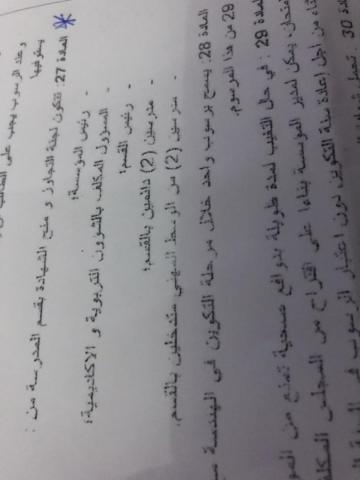 وعند الرسوب يجب على الطالب
يستوفيها
المادة 27: تتكون لجنة التجاوز و منح الشهادة بقسم المدرسة من :
- رئيس المؤسسة؛
- المسؤول المكلف بالشؤون التربوية و الاكاديمية؛
- رئيس القسم؛
- مدرسين (2) دائمين بالقسم؛
- مدرسين (2) من الوسط المهني متدخلين بالقسم.
المادة 28: يسمح برسوب واحد خلال مرحلة التكوين في الهندسة
29 من هذا المرسوم.
المادة 29 : في حال التغيب لمدة طويلة بدوافع صحية تمنع من
امتحان، يمكن لمدير المؤسسة بناءا على اقتراح من المجلس
من اجل إعادة سنة التكوين بدون اعتبار الرسوب في
ادة 30 :